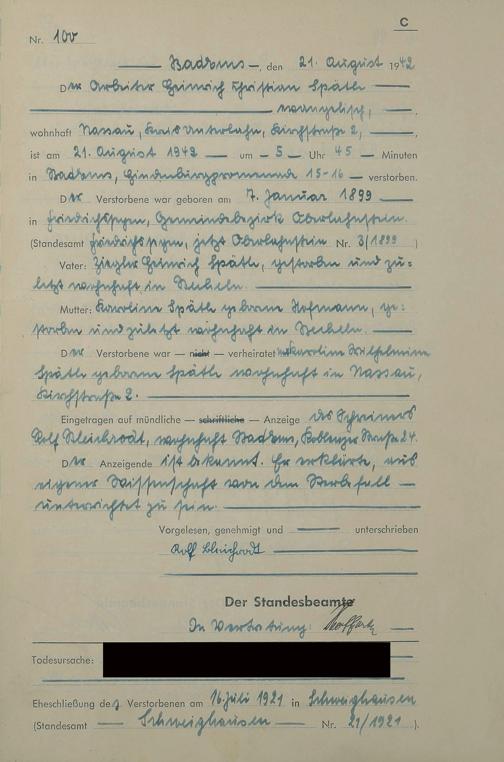 C
Nr. 100
Bad Ems, den 21. August 1942
Der Arbeiter Heinrich Christian Späth
evangelisch,
wohnhaft Nassau, Kreis Unterlahn, Kirchstraße 2,
ist am 21. August 1942 um 5 Uhr 45 Minuten
in Bad Ems, Hindenburgpromenade 15-16 verstorben.
Der Verstorbene war geboren am 7. Januar 1899
in Friedrichssegen, Gemeindebezirk Oberlahnstein.
(Standesamt Friedrichssegen, jetzt Oberlahnstein Nr. 3/1899)
Vater: Ziegler Heinrich Späth, gestorben und zu=
letzt wohnhaft in
Mutter: Karoline Späth geborene Hofmann, ge=
storben und zuletzt wohnhaft in
Der Verstorbene war — nicht — verheiratet mit Karoline Wilhelmine
Späth geborene Späth wohnhaft in Nassau,
Kirchstraße 2.
Eingetragen auf mündliche — schriftliche — Anzeige des Schreiners
wohnhaft Bad Ems, Koblenzer Straße 24.
Der Anzeigende ist bekannt. Er erklärte, aus
eigener Wissenschaft von dem Sterbefall
unterrichtet zu sein.
Vorgelesen, genehmigt und unterschrieben
Der Standesbeamte
In Vertretung:
Todesursache:
Eheschließung des Verstorbenen am 16. Juli 1921 in Schweighausen
(Standesamt Schweighausen Nr. 21/1921).